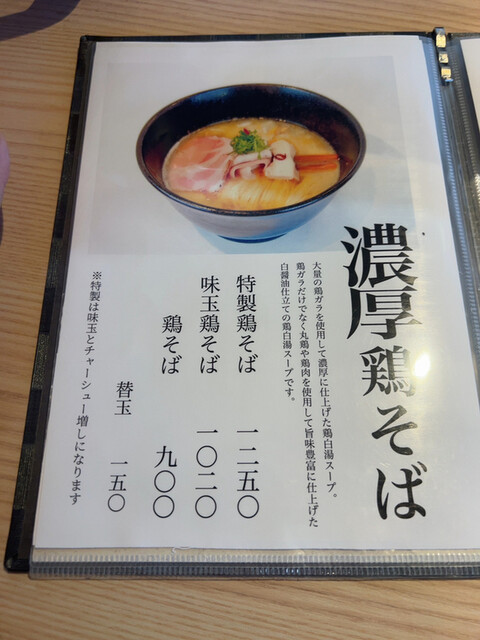 濃厚鶏そば
大量の鶏ガラを使用して濃厚に仕上げた鶏白湯スープ。
鶏ガラだけでなく丸鶏や鶏肉を使用して旨味豊富に仕上げた
白醤油仕立ての鶏白湯スープです。
特製鶏そば 一二五〇
味玉鶏そば 一〇二〇
鶏そば 九〇〇
替玉 一五〇
※特製は味玉とチャーシュー増しになります